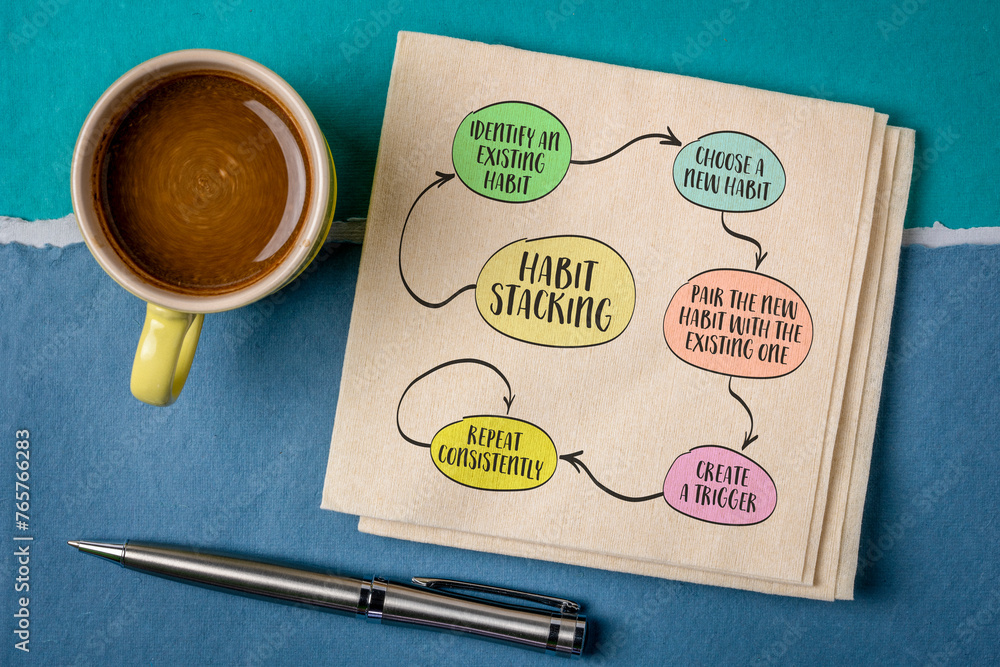 IDENTIFY AN
EXISTING
HABIT
CHOOSE A
NEW HABIT
HABIT
STACKING
PAIR THE NEW
HABIT WITH THE
EXISTING ONE
REPEAT
CONSISTENTLY
CREATE
A TRIGGER
Adobe Stock | #765766283
© MarekPhotoDesign.com